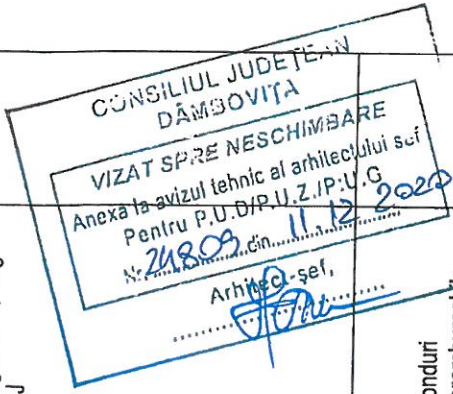 CONSILIUL JUDEȚEAN
DÂMBOVIȚA
VIZAT SPRE NESCHIMBARE
Anexa la avizul tehnic al arhitectului șef
Pentru P.U.D/P.U.Z./P.U.G
Nr. 24809 din 11.12 2020
Arhitect-șef,
onduri